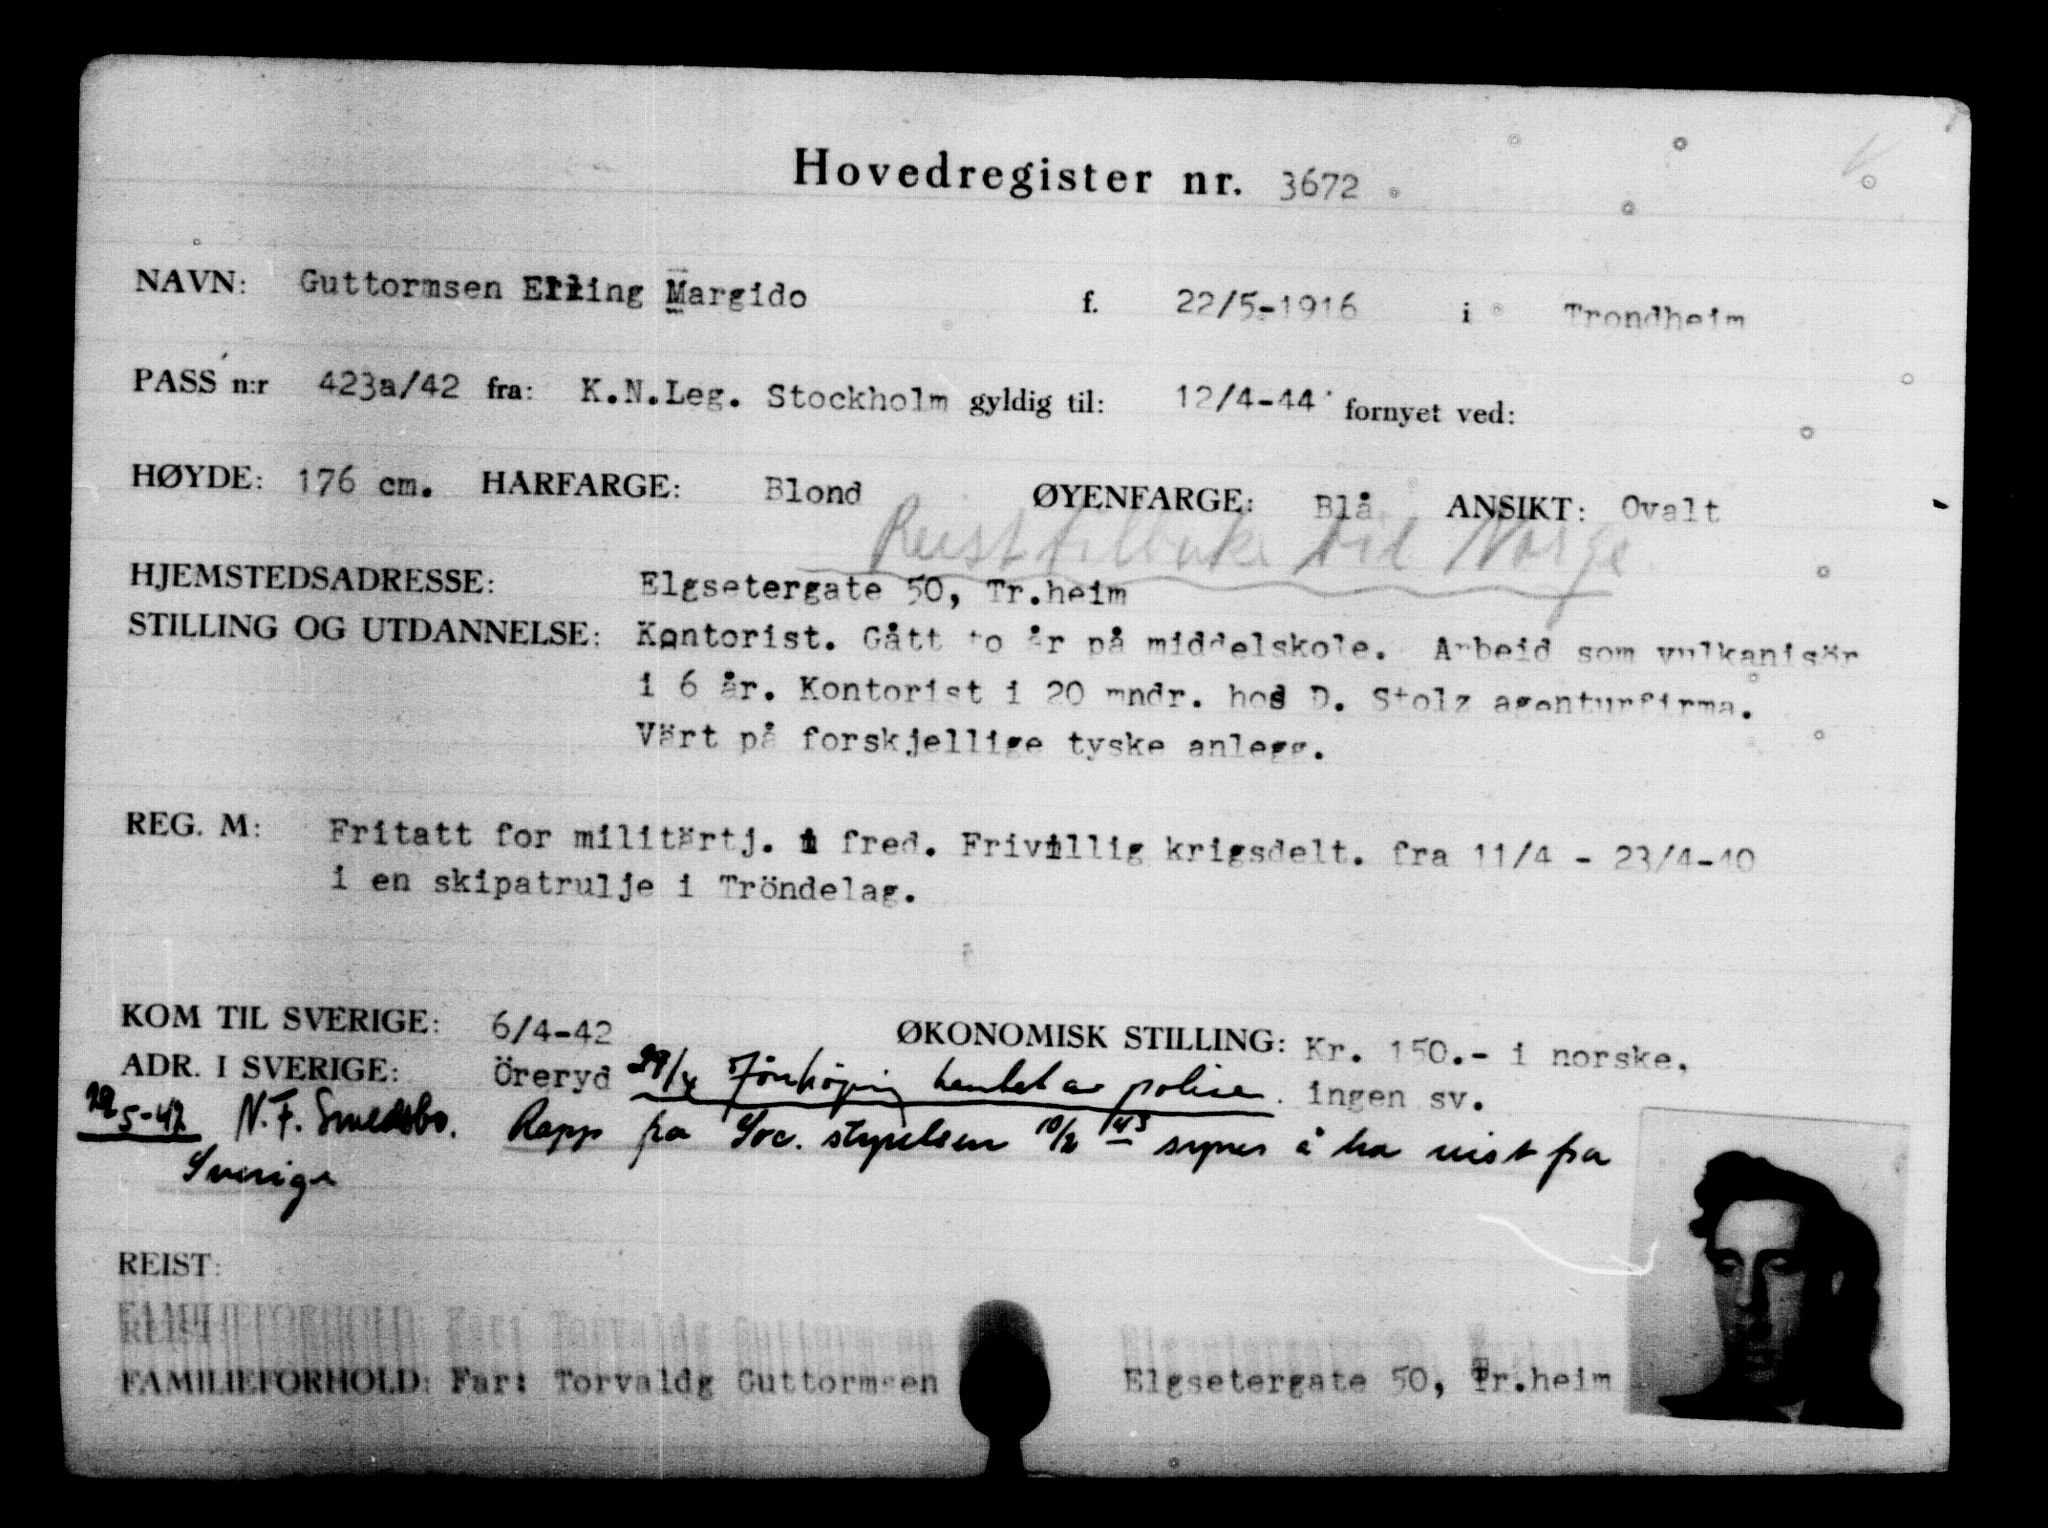 Hovedregister nr. 3672
NAVN: Guttormsen Erling Margido f. 22/5-1916 i Trondheim
PASS n:r 423a/42 fra: K.N.Leg. Stockholm gyldig til: 12/4-44 fornyet ved:
HØYDE: 176 cm. HÅRFARGE: Blond ØYENFARGE: Blå ANSIKT: Ovalt
Reist tilbake til Norge
HJEMSTEDSADRESSE: Elgsetergate 50, Tr.heim
STILLING OG UTDANNELSE: Kontorist. Gått to år på middelskole. Arbeid som vulkanisör
i 6 år. Kontorist i 20 mndr. hos D. Stolz agenturfirma.
Värt på forskjellige tyske anlegg.
REG. M: Fritatt for militärtj. i fred. Frivillig krigsdelt. fra 11/4 - 23/4-40
i en skipatrulje i Tröndelag.
KOM TIL SVERIGE: 6/4-42 ØKONOMISK STILLING: Kr. 150.- i norske,
ADR. I SVERIGE: Öreryd 29/4 Jönköping hentet av polise. ingen sv.
5-42 N.F. Smedsbo. Rapp fra Soc. styrelsen 10/2 43 synes å ha reist fra
Sverige
REIST:
FAMILIEFORHOLD: Far: Torvaldg Guttormsen Elgsetergate 50, Tr.heim